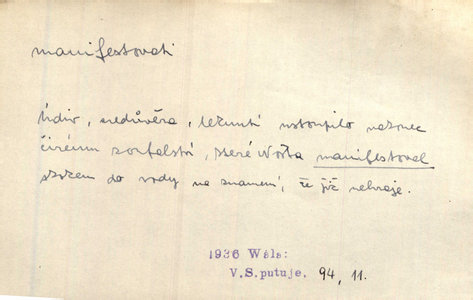 manifestovati
Údiv, nedůvěra, ležení ustoupilo nakonec
čirému zoufalství, které Voďka manifestoval
skokem do vody na znamení, že již nehraje.
1936 Wels:
V.S.putuje. 94, 11.